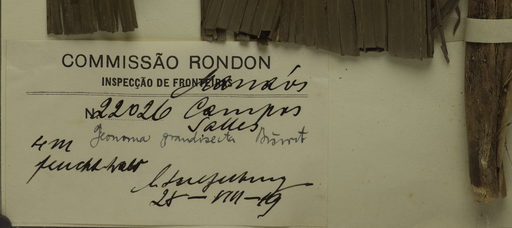 COMMISSÃO RONDON
INSPECÇÃO DE FRONTEIRAS Manáos
No 22026 Campos
Salles
Geonoma grandisecta Burret
4 m
feucht. Wald
28 – VIII – 29